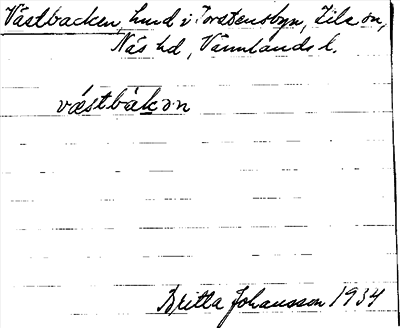 Västbacken, hmd i Torstensbyn, Eds sn,
Näs hd, Värmlands l.
væstbàkən
Britta Johansson 1934